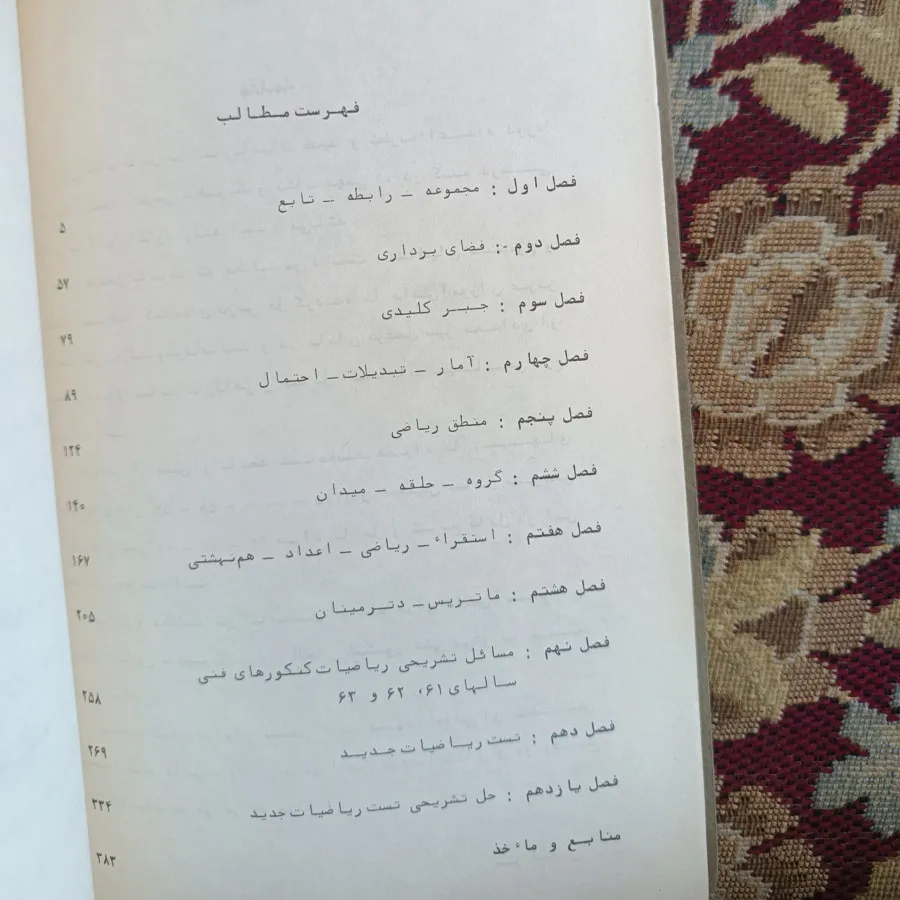 فهرست مطالب
فصل اول : مجموعه ـ رابطه ـ تابع ۵
فصل دوم : فضای برداری ۵۷
فصل سوم : جبر کلیدی ۷۹
فصل چهارم : آمار ـ تبدیلات ـ احتمال ۸۹
فصل پنجم : منطق ریاضی ۱۲۴
فصل ششم : گروه ـ حلقه ـ میدان ۱۴۰
فصل هفتم : استقراء ـ ریاضی ـ اعداد ـ هم‌نهشتی ۱۶۷
فصل هشتم : ماتریس ـ دترمینان ۲۰۵
فصل نهم : مسائل تشریحی ریاضیات کنکورهای فنی
سالهای ۶۱، ۶۲ و ۶۳ ۲۵۸
فصل دهم : تست ریاضیات جدید ۲۶۹
فصل یازدهم : حل تشریحی تست ریاضیات جدید ۳۳۴
منابع و ماءخذ ۳۸۳